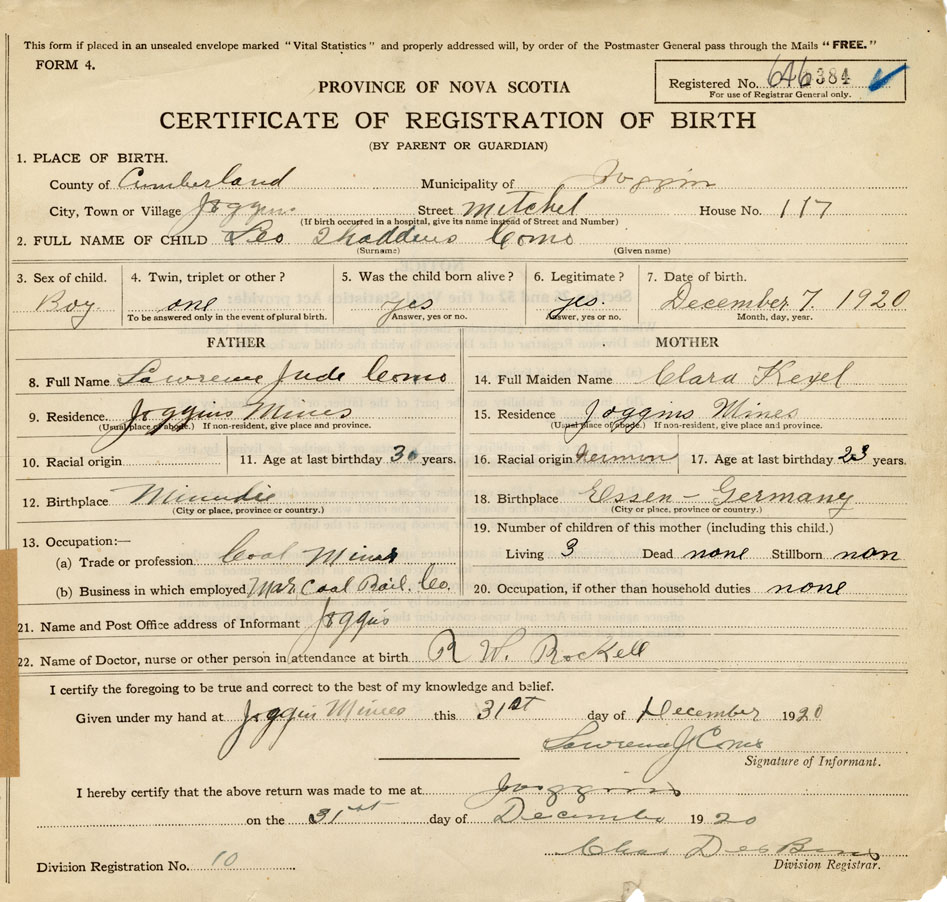 This form if placed in an unsealed envelope marked "Vital Statistics" and properly addressed will, by order of the Postmaster General pass through the Mails "FREE."
FORM 4.
Registered No. 646384
For use of Registrar General only.
PROVINCE OF NOVA SCOTIA
CERTIFICATE OF REGISTRATION OF BIRTH
(BY PARENT OR GUARDIAN)
1. PLACE OF BIRTH.
County of Cumberland Municipality of Joggins
City, Town or Village Joggins Street Mitchel House No. 117
(If birth occurred in a hospital, give its name instead of Street and Number)
2. FULL NAME OF CHILD Leo Thaddeus Como
(Surname) (Given name)
3. Sex of child. 4. Twin, triplet or other? 5. Was the child born alive? 6. Legitimate? 7. Date of birth.
Boy one yes yes. December 7 1920
To be answered only in the event of plural birth. Answer, yes or no. Answer, yes or no. Month, day, year.
FATHER MOTHER
8. Full Name Lawrence Jude Como 14. Full Maiden Name Clara
9. Residence. Joggins Mines 15. Residence Joggins Mines
(Usual place of abode.) If non-resident, give place and province. (Usual place of abode.) If non-resident, give place and province.
10. Racial origin 11. Age at last birthday 30 years. 16. Racial origin 17. Age at last birthday 23 years.
12. Birthplace Minudie 18. Birthplace Essen - Germany
(City or place, province or country.) (City or place, province or country.)
19. Number of children of this mother (including this child.)
13. Occupation:—
(a) Trade or profession. Coal Miner Living 3 Dead none Stillborn non
(b) Business in which employed Mar, Coal Rail. Co. 20. Occupation, if other than household duties none
21. Name and Post Office address of Informant Joggins
22. Name of Doctor, nurse or other person in attendance at birth R W. Rockell
I certify the foregoing to be true and correct to the best of my knowledge and belief.
Given under my hand at Joggin Mines this 31st day of December 1920
Lawrence J Como
Signature of Informant.
I hereby certify that the above return was made to me at Joggins
on the 31st day of December 1920
Chas
Division Registration No. 10 Division Registrar.